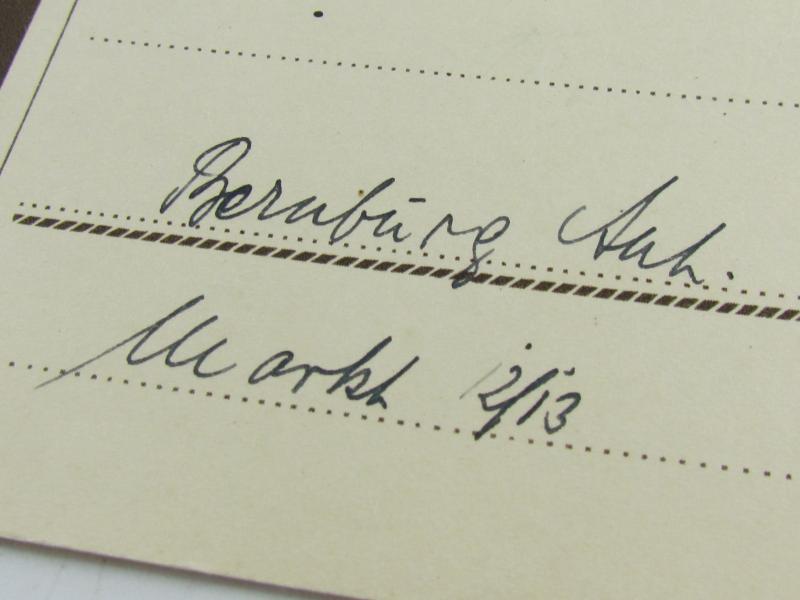 Bernburg Anh.
Markt 12/13